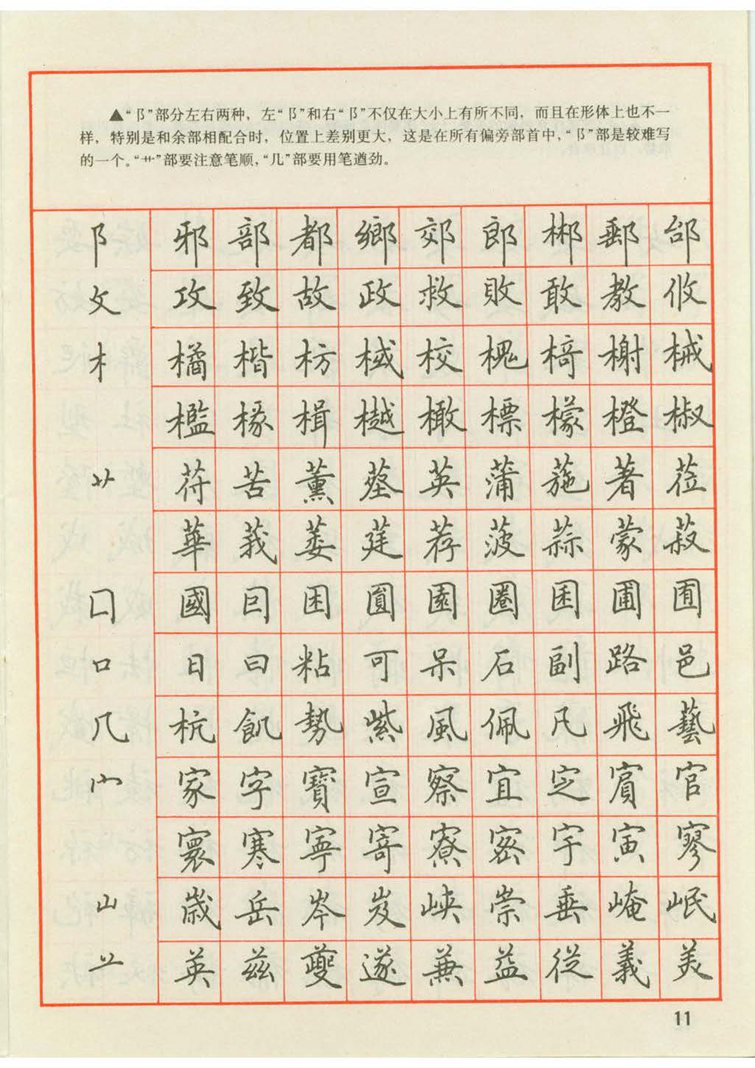 ▲“阝”部分左右两种，左“阝”和右“阝”不仅在大小上有所不同，而且在形体上也不一
样，特别是和余部相配合时，位置上差别更大，这是在所有偏旁部首中，“阝”部是较难写
的一个。“艹”部要注意笔顺，“几”部要用笔遒劲。
阝 邪 部 都 鄉 郊 郎 郴 郵 邰
攵 攻 致 故 政 救 敗 敢 教 攸
木 橘 楷 枋 棫 校 槐 椅 榭 械
檻 椽 楫 樾 橄 標 檬 橙 椒
艹 苻 苦 薰 英 蒲 葹 著 莅
華 莪 萎 莛 荐 菠 蒜 蒙 菽
囗 國 囙 困 圓 園 圈 困 圃 囿
口 日 曰 粘 可 呆 石 副 路 邑
几 杭 飢 勢 紫 風 佩 凡 飛 藝
宀 家 字 寶 宣 察 宜 定 賓 官
寰 寒 寧 寄 寮 密 宇 寅 寥
山 歲 岳 岑 岌 峽 崇 垂 崦 岷
䒑 英 兹 夔 遂 兼 益 從 義 美
11